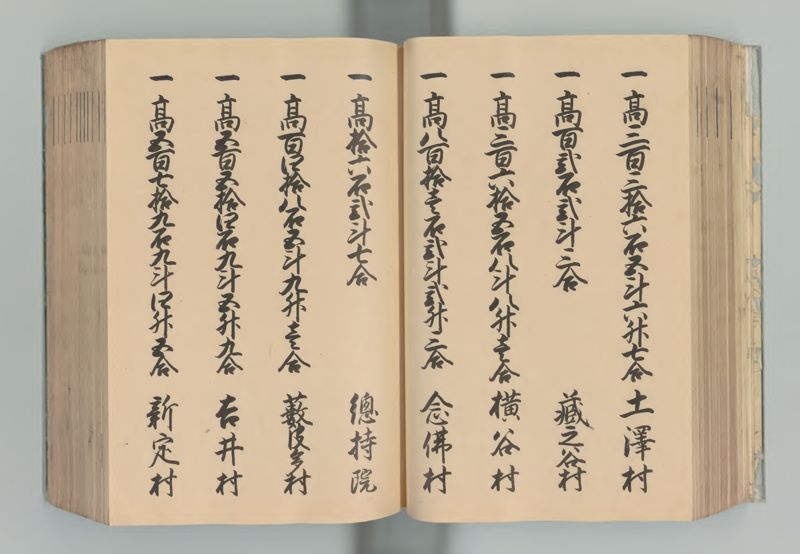 一高三百三拾六石五斗六升七合 土澤村
一高百弐石弐斗三合 藏之谷村
一高三百六拾五石八斗八升壱合 横谷村
一高八百拾壱石弐斗弐升二合 念佛村
一高拾六石弐斗七合 總持院
一高百四拾八石五斗九升壱合 藪波多村
一高五百五拾四石九斗五升九合 吉井村
一高五百七拾九石九斗四升五合 新定村